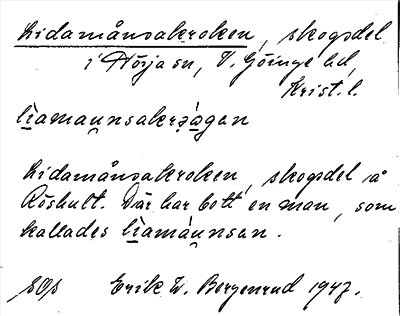 Lidamånsakroken, skogsdel
i Hörja sn, V. Göinge hd,
Krist. l.
lìamau̯nsakrə́agan
Lidamånsakroken, skogsdel å
Röshult. Där har bott en man, som
kallades lìamáu̯nsan.
Erik W. Bergenrud 1947.